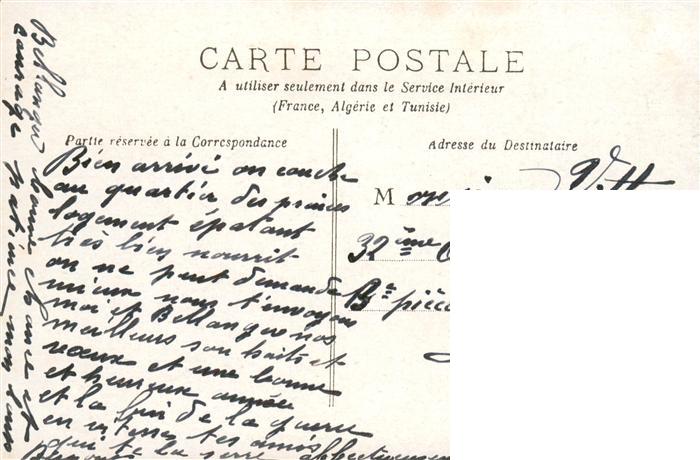 CARTE POSTALE
A utiliser seulement dans le Service Intérieur
(France, Algérie et Tunisie)
Partie réservée à la Correspondance
Adresse du Destinataire
Bien arrivé on couche
au quartier des princes
logement épatant
très bien nourrit
on ne peut demander
mieux nous t'envoyons
moi et Bellanger nos
meilleurs souhaits et
vœux et une bonne
et heureuse année
et la fin de la guerre
tes amis
qui te la serre affectueusement
Bellanger bonne chance et
courage patience mon
M
32ème
Bie pièce